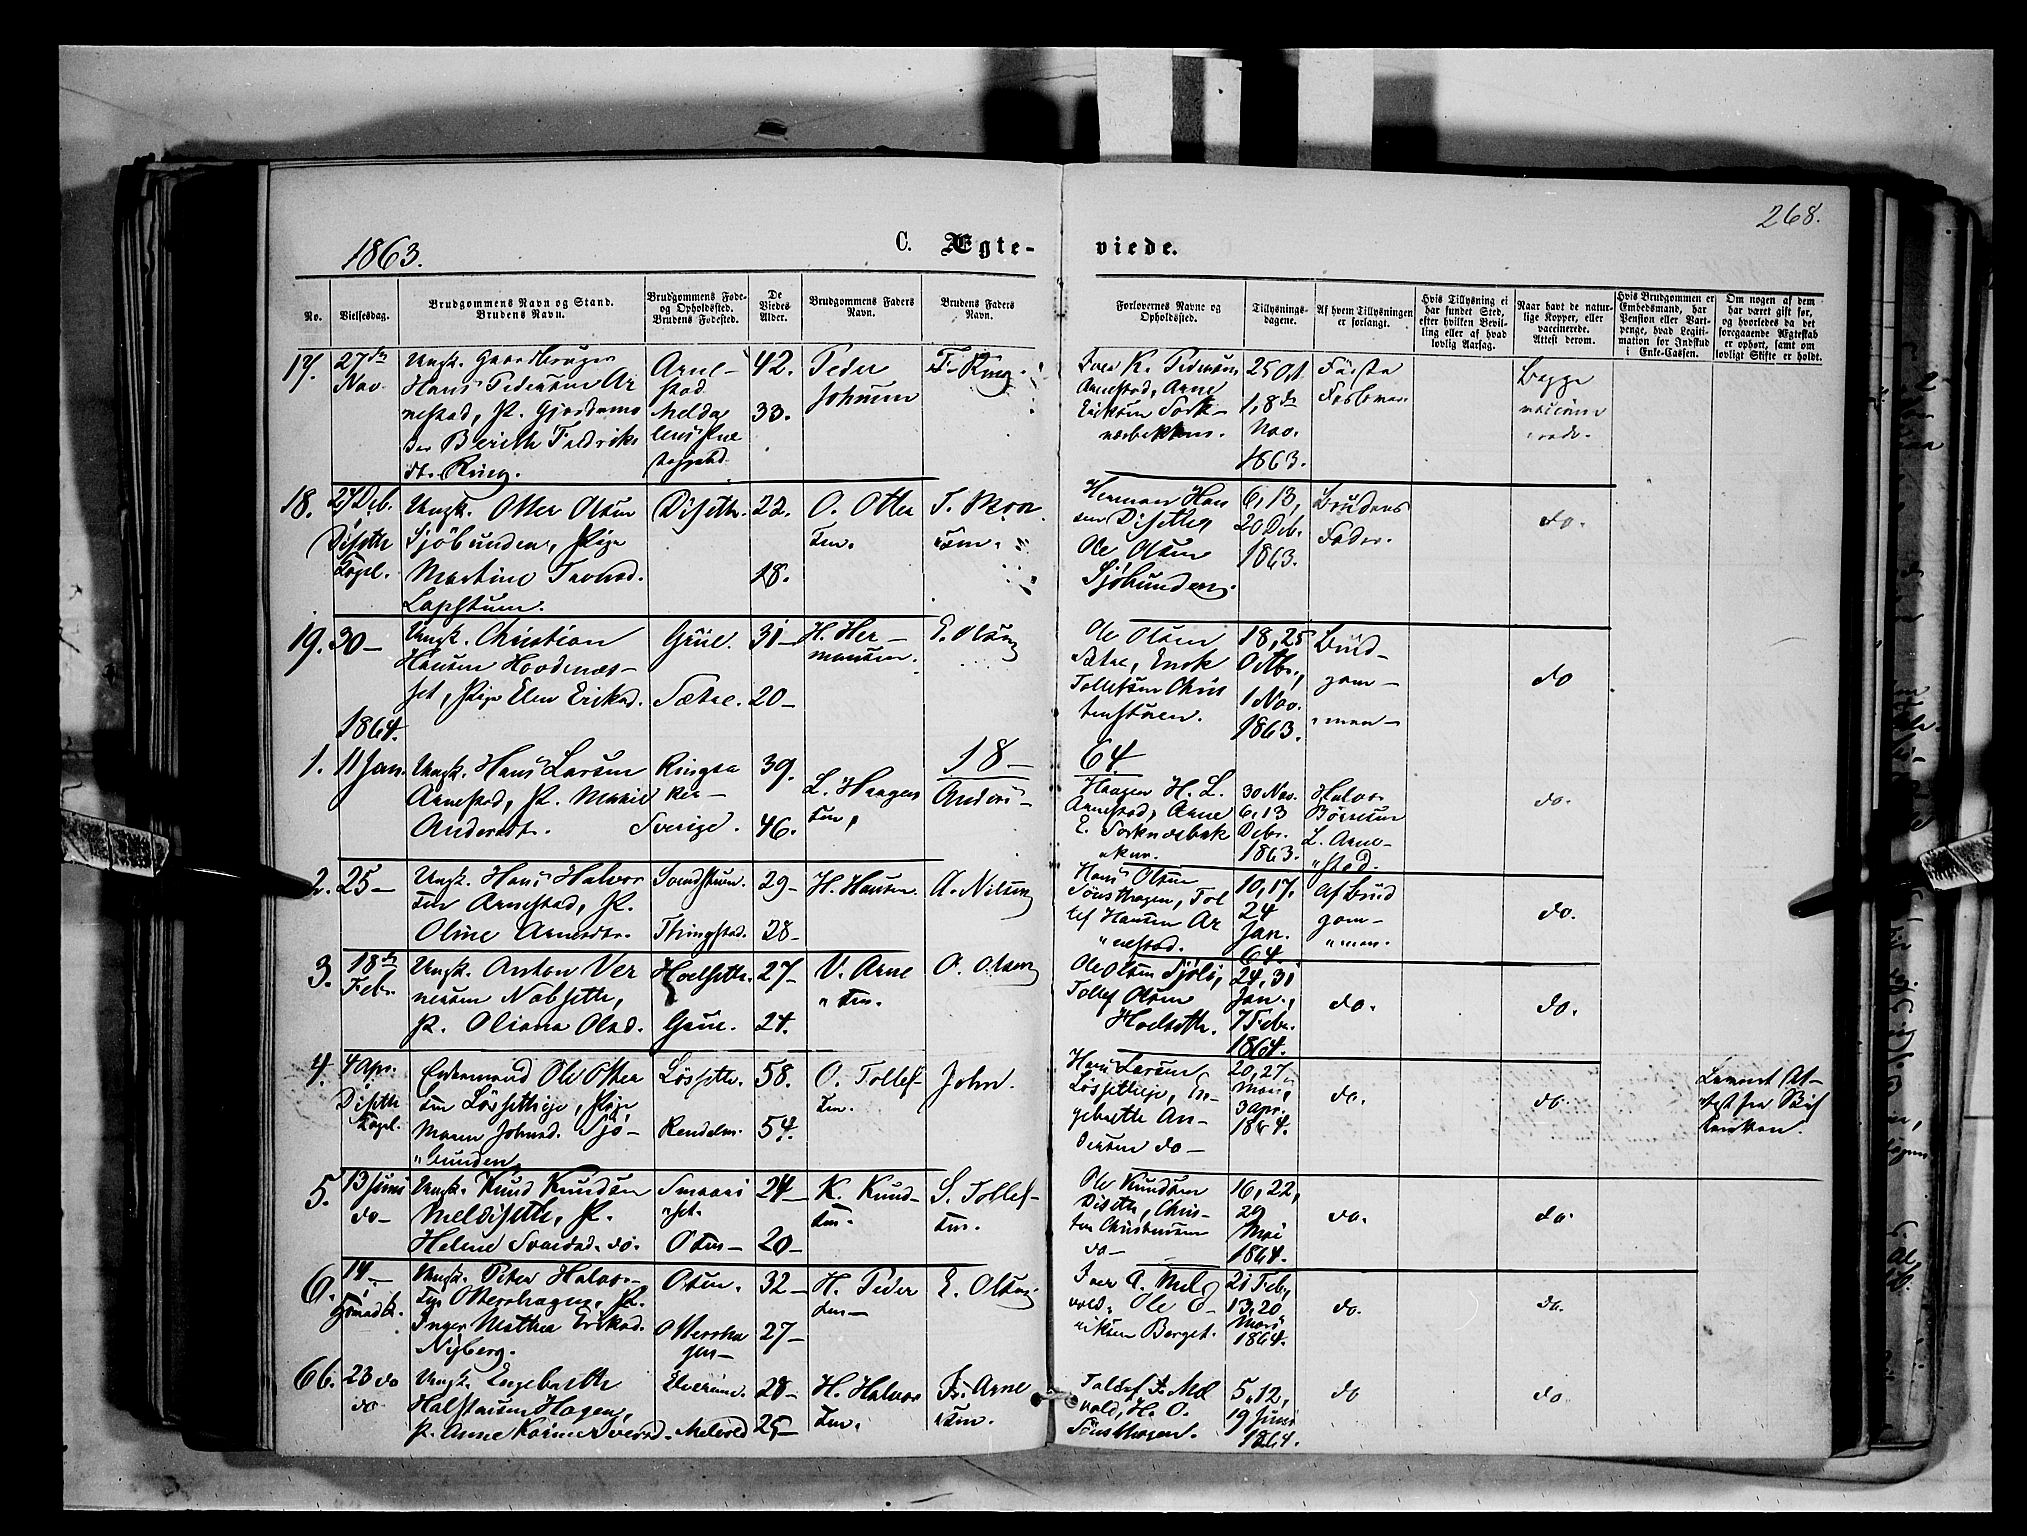 268.
1863.
C. Ægte-
viede.
No.
Vielsesdag.
Brudgommens Navn og Stand.
Brudens Navn.
Brudgommens Føde-
og Opholdssted.
Brudens Fødested.
De
Viedes
Alder.
Brudgommens Faders
Navn.
Brudens Faders
Navn.
Forlovernes Navne og
Opholdssted.
Tillysnings-
dagene.
Af hvem Tillysningen
er forlangt.
Hvis Tillysning ei
har fundet Sted,
efter hvilken Bevil-
ling eller af hvad
lovlig Aarsag.
Naar havt de natur-
lige Kopper, eller
vaccinerede.
Attest derom.
Hvis Brudgommen er
Embedsmand, har
Pension eller Vart-
penge, hvad Legiti-
mation for Indskud
i Enke-Cassen.
Om nogen af dem
har været gift før,
og hvorledes da det
foregaaende Ægteskab
er ophørt, samt om
lovligt Skifte er holdt.
17.
27de
Nov.
Ungk. Gaardbruger
Hans Pedersen Ar
nestad, P.
Berith Fredriks
dtr. Ring.
Arne-
stad
42.
33.
Peder
Johnsen
F. Ring.
Iver K. Pedersen
Arnestad, Arne
Ericksen Sork-
næsbakken.
25 Oct.
1, 8de
Nov.
1863.
Første
Forlover
Begge
vaccine
rede.
18.
27 Deb.
Diseth
Kapel.
Ungk. Otter Olsen
Sjöbunden, Pige
Martine
Diseth.
22.
18.
O. Otter
sen.
Herman Han
sen Diseth,
Ole Olsen
Sjöbunden.
6, 13,
20 Deb.
1863.
Brudens
Fader.
do.
19.
30-
Ungk. Christian
Hansen
set, Pige Elen Eriksd.
Grue.
Sætre.
31-
20-
H. Her-
mansen.
E. Olsen
Ole Olsen
Sætre, Enok
Tollefsen Chris
tenstuen.
18, 25
Octbr.,
1 Nov.
1863.
Brud-
gom-
men-
do
1864.
18-
64.
1.
11 Jan.
Ungk. Hans Larsen
Arnestad, P. Marie
Andersdt.
Ringsa
ker-
Sverige.
39.
46.
L. Haagen
sen,
Anders-
Haagen H. L.
Arnestad, Arne
E. Sorknæsbak
ken.
30 Nov.
6, 13
Debr.
1863.
Halvor
L. Arne-
stad.
do.
2.
25-
Ungk. Hans Halvor
sen Arnestad, P.
Oline Arnesdtr.
Thingstad.
29-
28-
H. Hansen
A. Nilsen
Hans Olsen
Sönsthagen, Tol
lef Hansen Ar
nestad.
10, 17.
24
Jan.
64.
Af Brud
gom-
men.
do.
3.
18de
Febr.
Ungk. Anton Ver
nersen Nabseth,
P. Oliana Olsd.
Hoelseth.
Grue.
27-
24.
V. Arne
sen.
O. Olsen
Ole Olsen Sjöli,
Tollef Olsen
Hoelseth.
24, 31
Jan.,
7 Febr.
1864.
do.
do.
4.
4 Apr.
Diseth
Kapel.
Enkemand Ole Otter
sen Lössetheje, Pige
Maren Johnsd. Sjö-
bunden.
Lösseth.
Rendalen.
58.
54.
O. Tollef-
sen.
John.
Hans Larsen
Lössetheje, En-
gebreth An-
dersen do-
20, 27
Mars,
3 Apr.
1864.
do.
do
5.
13 Juni
do-
Ungk. Knud Knudsen
Meldiseth, P.
Helene Svendsd. do.
Osen-
24-
20-
K. Knud-
sen.
S. Tollef-
sen.
Ole Knudsen
Diseth, Chris-
ten Christensen
do-
16, 22,
29
Mai
1864.
do.
do.
6.
14-
Ungk. Peter Halvor-
sen Ottershagen, P.
Inger Mathea Eriksd.
Nyberg.
Osen.
Ottersha
gen-
32-
27-
H. Peder
sen-
E. Olsen
Iver A. Mel
vold, Ole E-
riksen Berget.
21 Feb,
13, 20
Mars
1864.
do.
do.
6b.
23 do
do
Ungk. Engebreth
Halstensen Hagen,
P. Anne
Elverum.
Melvold
28-
25-
H. Halvor
sen.
Fr. Arne
sen.
Tollef F. Mel
vold, H. O.
Sönsthagen.
5, 12,
19 Juni
1864.
do
do